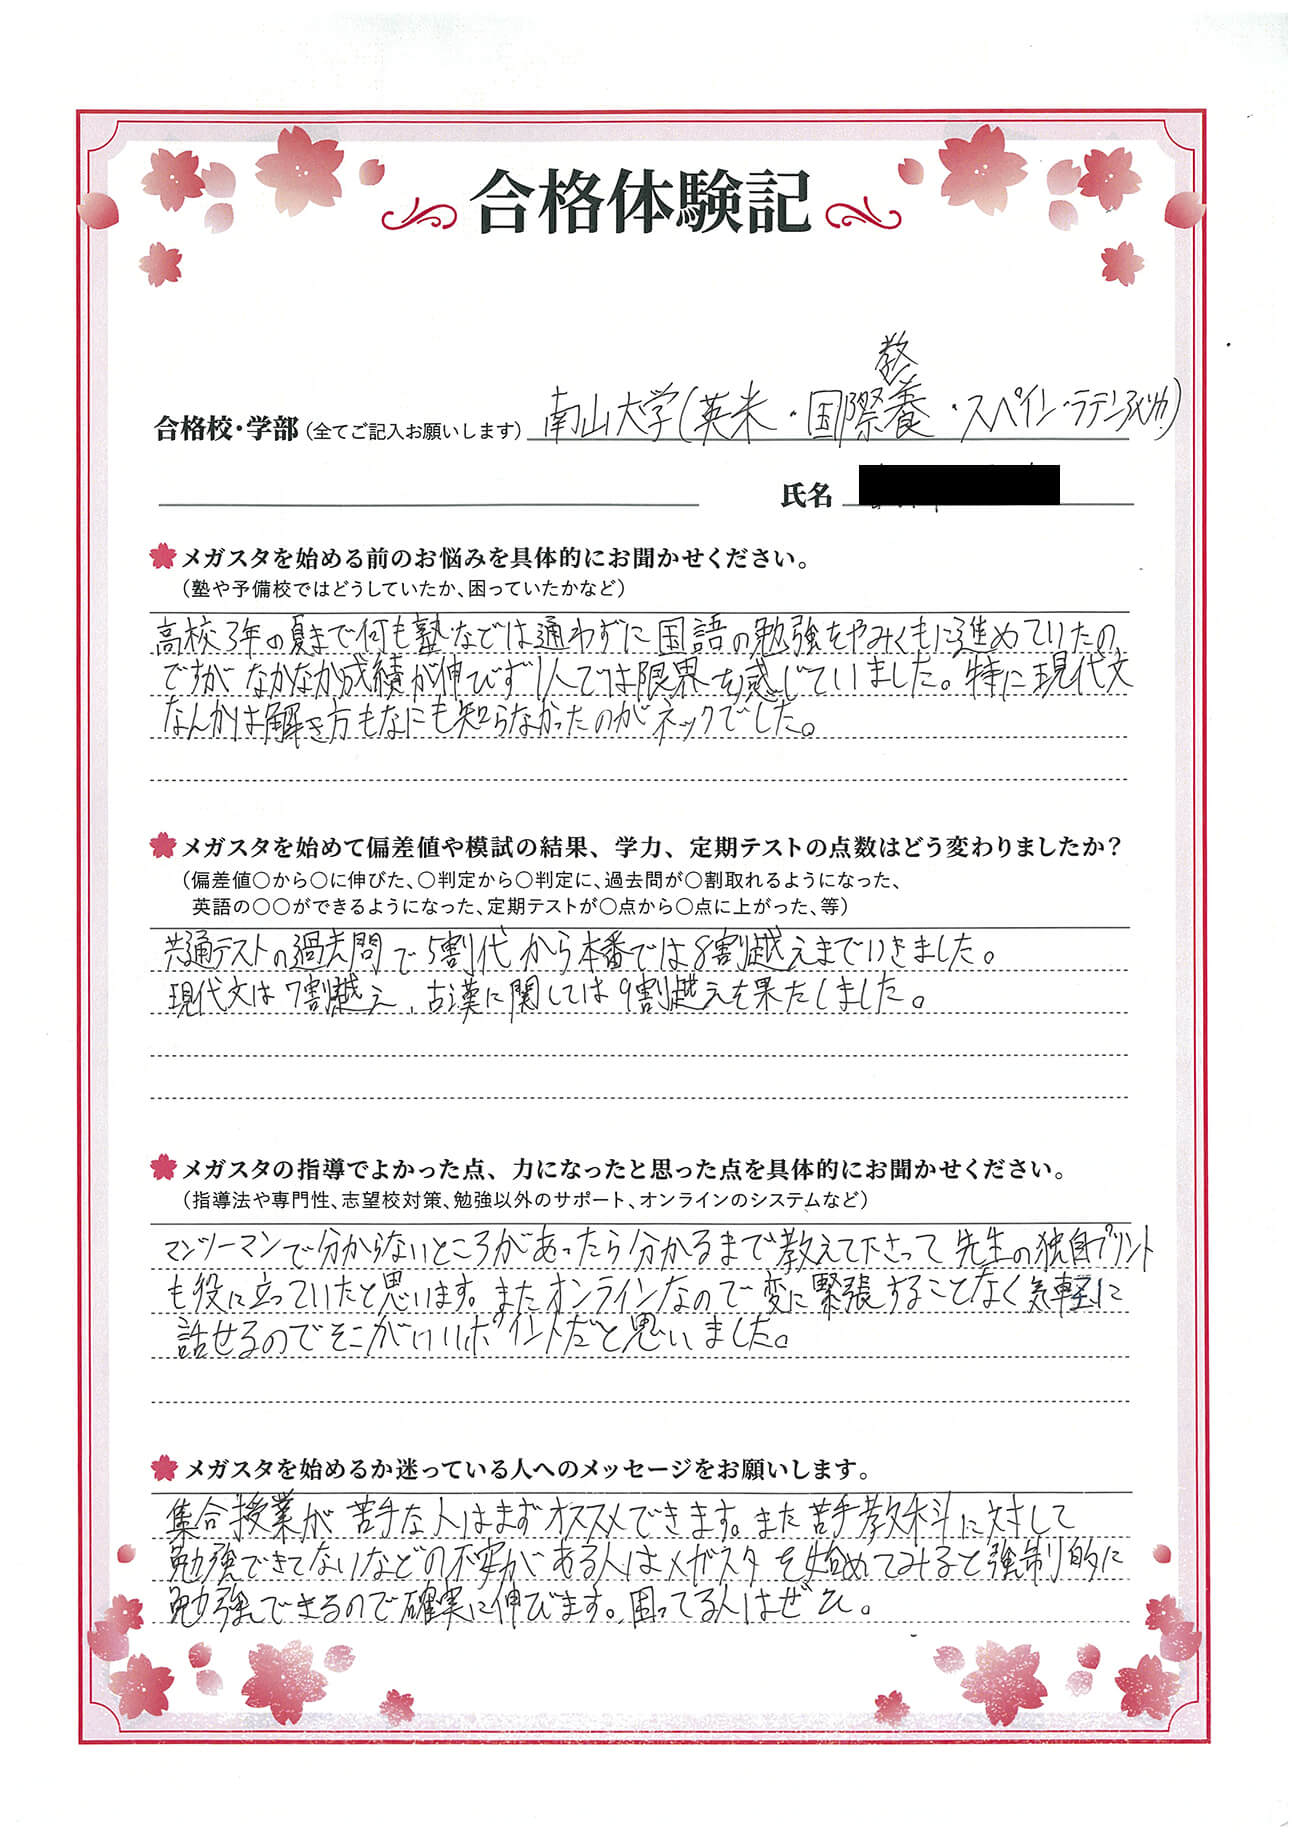 合格体験記
合格校・学部（全てご記入お願いします） 南山大学(英米・国際教養・スペイン・ラテンアメリカ)
氏名
メガスタを始める前のお悩みを具体的にお聞かせください。
（塾や予備校ではどうしていたか、困っていたかなど）
高校3年の夏まで何も塾などは通わずに国語の勉強をやみくもに進めていたの
ですがなかなか成績が伸びず1人では限界を感じていました。特に現代文
なんかは解き方もなにも知らなかったのがネックでした。
メガスタを始めて偏差値や模試の結果、学力、定期テストの点数はどう変わりましたか？
（偏差値〇から〇に伸びた、〇判定から〇判定に、過去問が〇割取れるようになった、
英語の〇〇ができるようになった、定期テストが〇点から〇点に上がった、等）
共通テストの過去問で5割代から本番では8割越えまでいきました。
現代文は7割越え、古漢に関しては9割越えを果たしました。
メガスタの指導でよかった点、力になったと思った点を具体的にお聞かせください。
（指導法や専門性、志望校対策、勉強以外のサポート、オンラインのシステムなど）
マンツーマンで分からないところがあったら分かるまで教えて下さって先生の独自プリント
も役に立っていたと思います。またオンラインなので変に緊張することなく気軽に
話せるのでそこがいいポイントだと思いました。
メガスタを始めるか迷っている人へのメッセージをお願いします。
集合授業が苦手な人はまずオススメできます。また苦手教科に対して
勉強できてないなどの不安がある人はメガスタを始めてみると強制的に
勉強できるので確実に伸びます。困ってる人はぜひ。